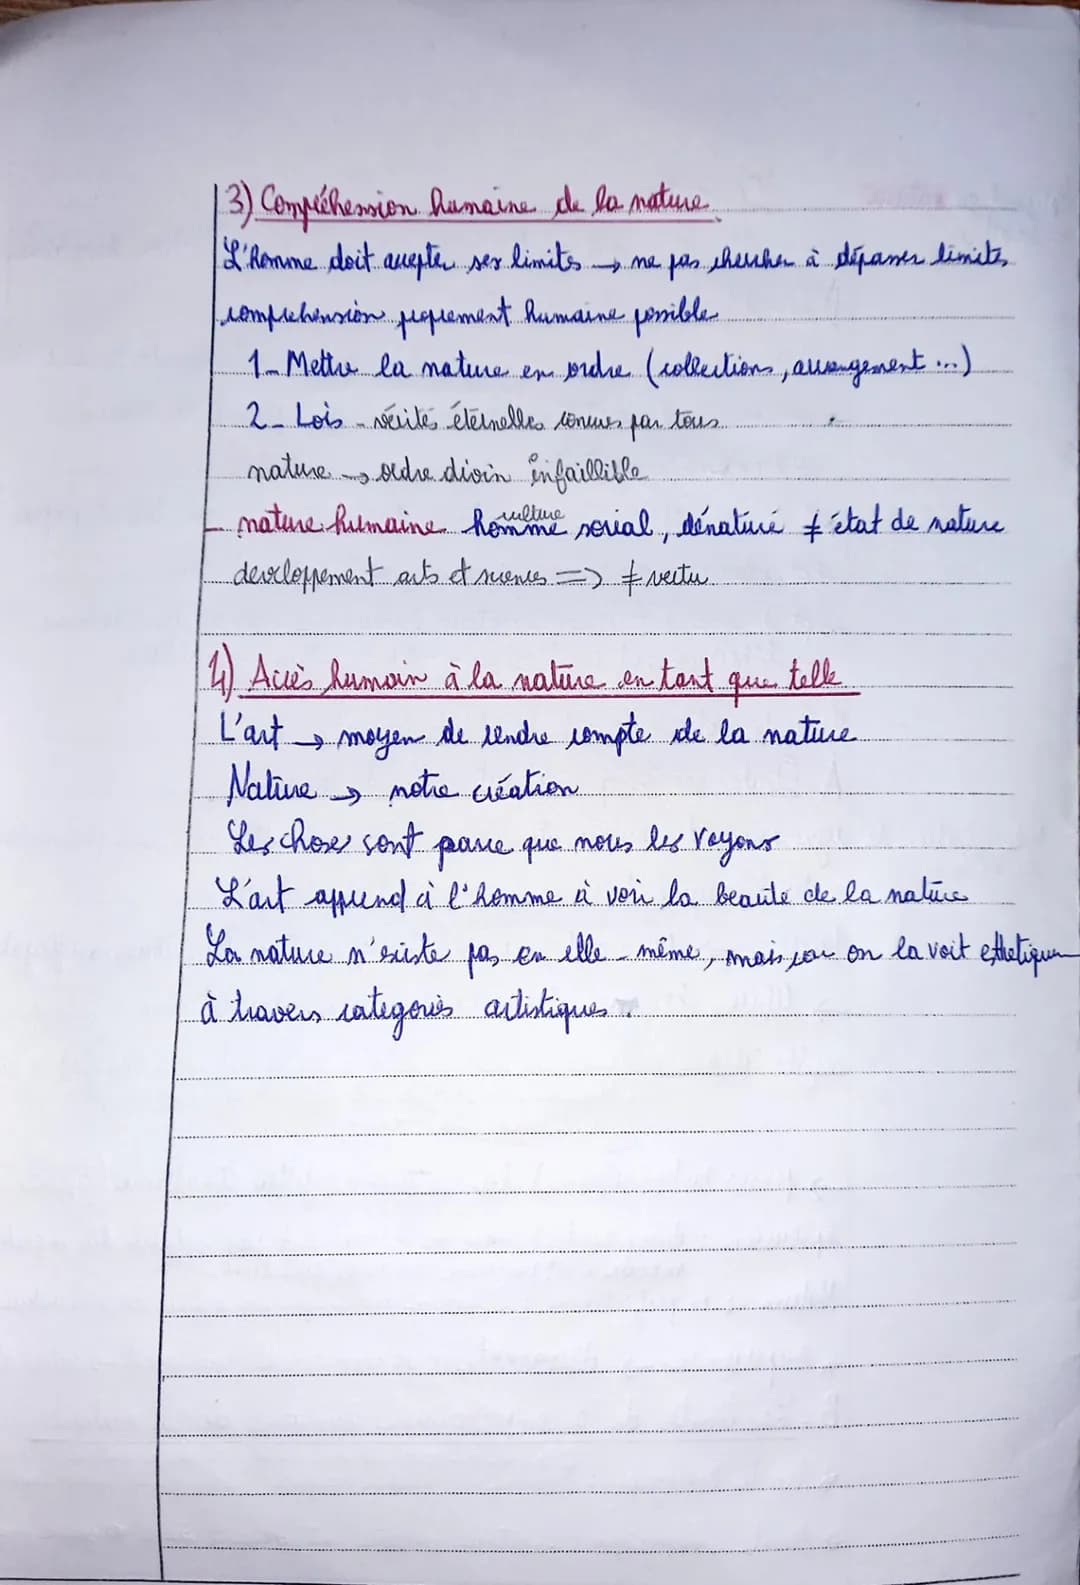 3) Compréhension humaine de la nature.
L'homme doit accepter ses limites → ne pas chercher à dépasser limites
compréhension proprement humaine possible
1_ Mettre la nature en ordre (collections, arrangement ...)
2_ Lois _ vérités éternelles connues par tous
nature → ordre divin infaillible
culture
_ nature humaine homme social, dénaturé ≠ état de nature
developpement arts et sciences => ≠ vertu
4) Accès humain à la nature en tant que telle
L'art → moyen de rendre compte de la nature
Nature → notre création
Les choses sont parce que nous les voyons
L'art apprend à l'homme à voir la beauté de la nature
La nature n'existe pas en elle - même, mais car on la voit
à travers categories artistiques.